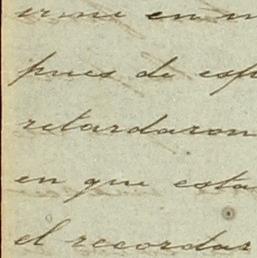 en u
pues de esp
retardaron
en que esta
el recordar